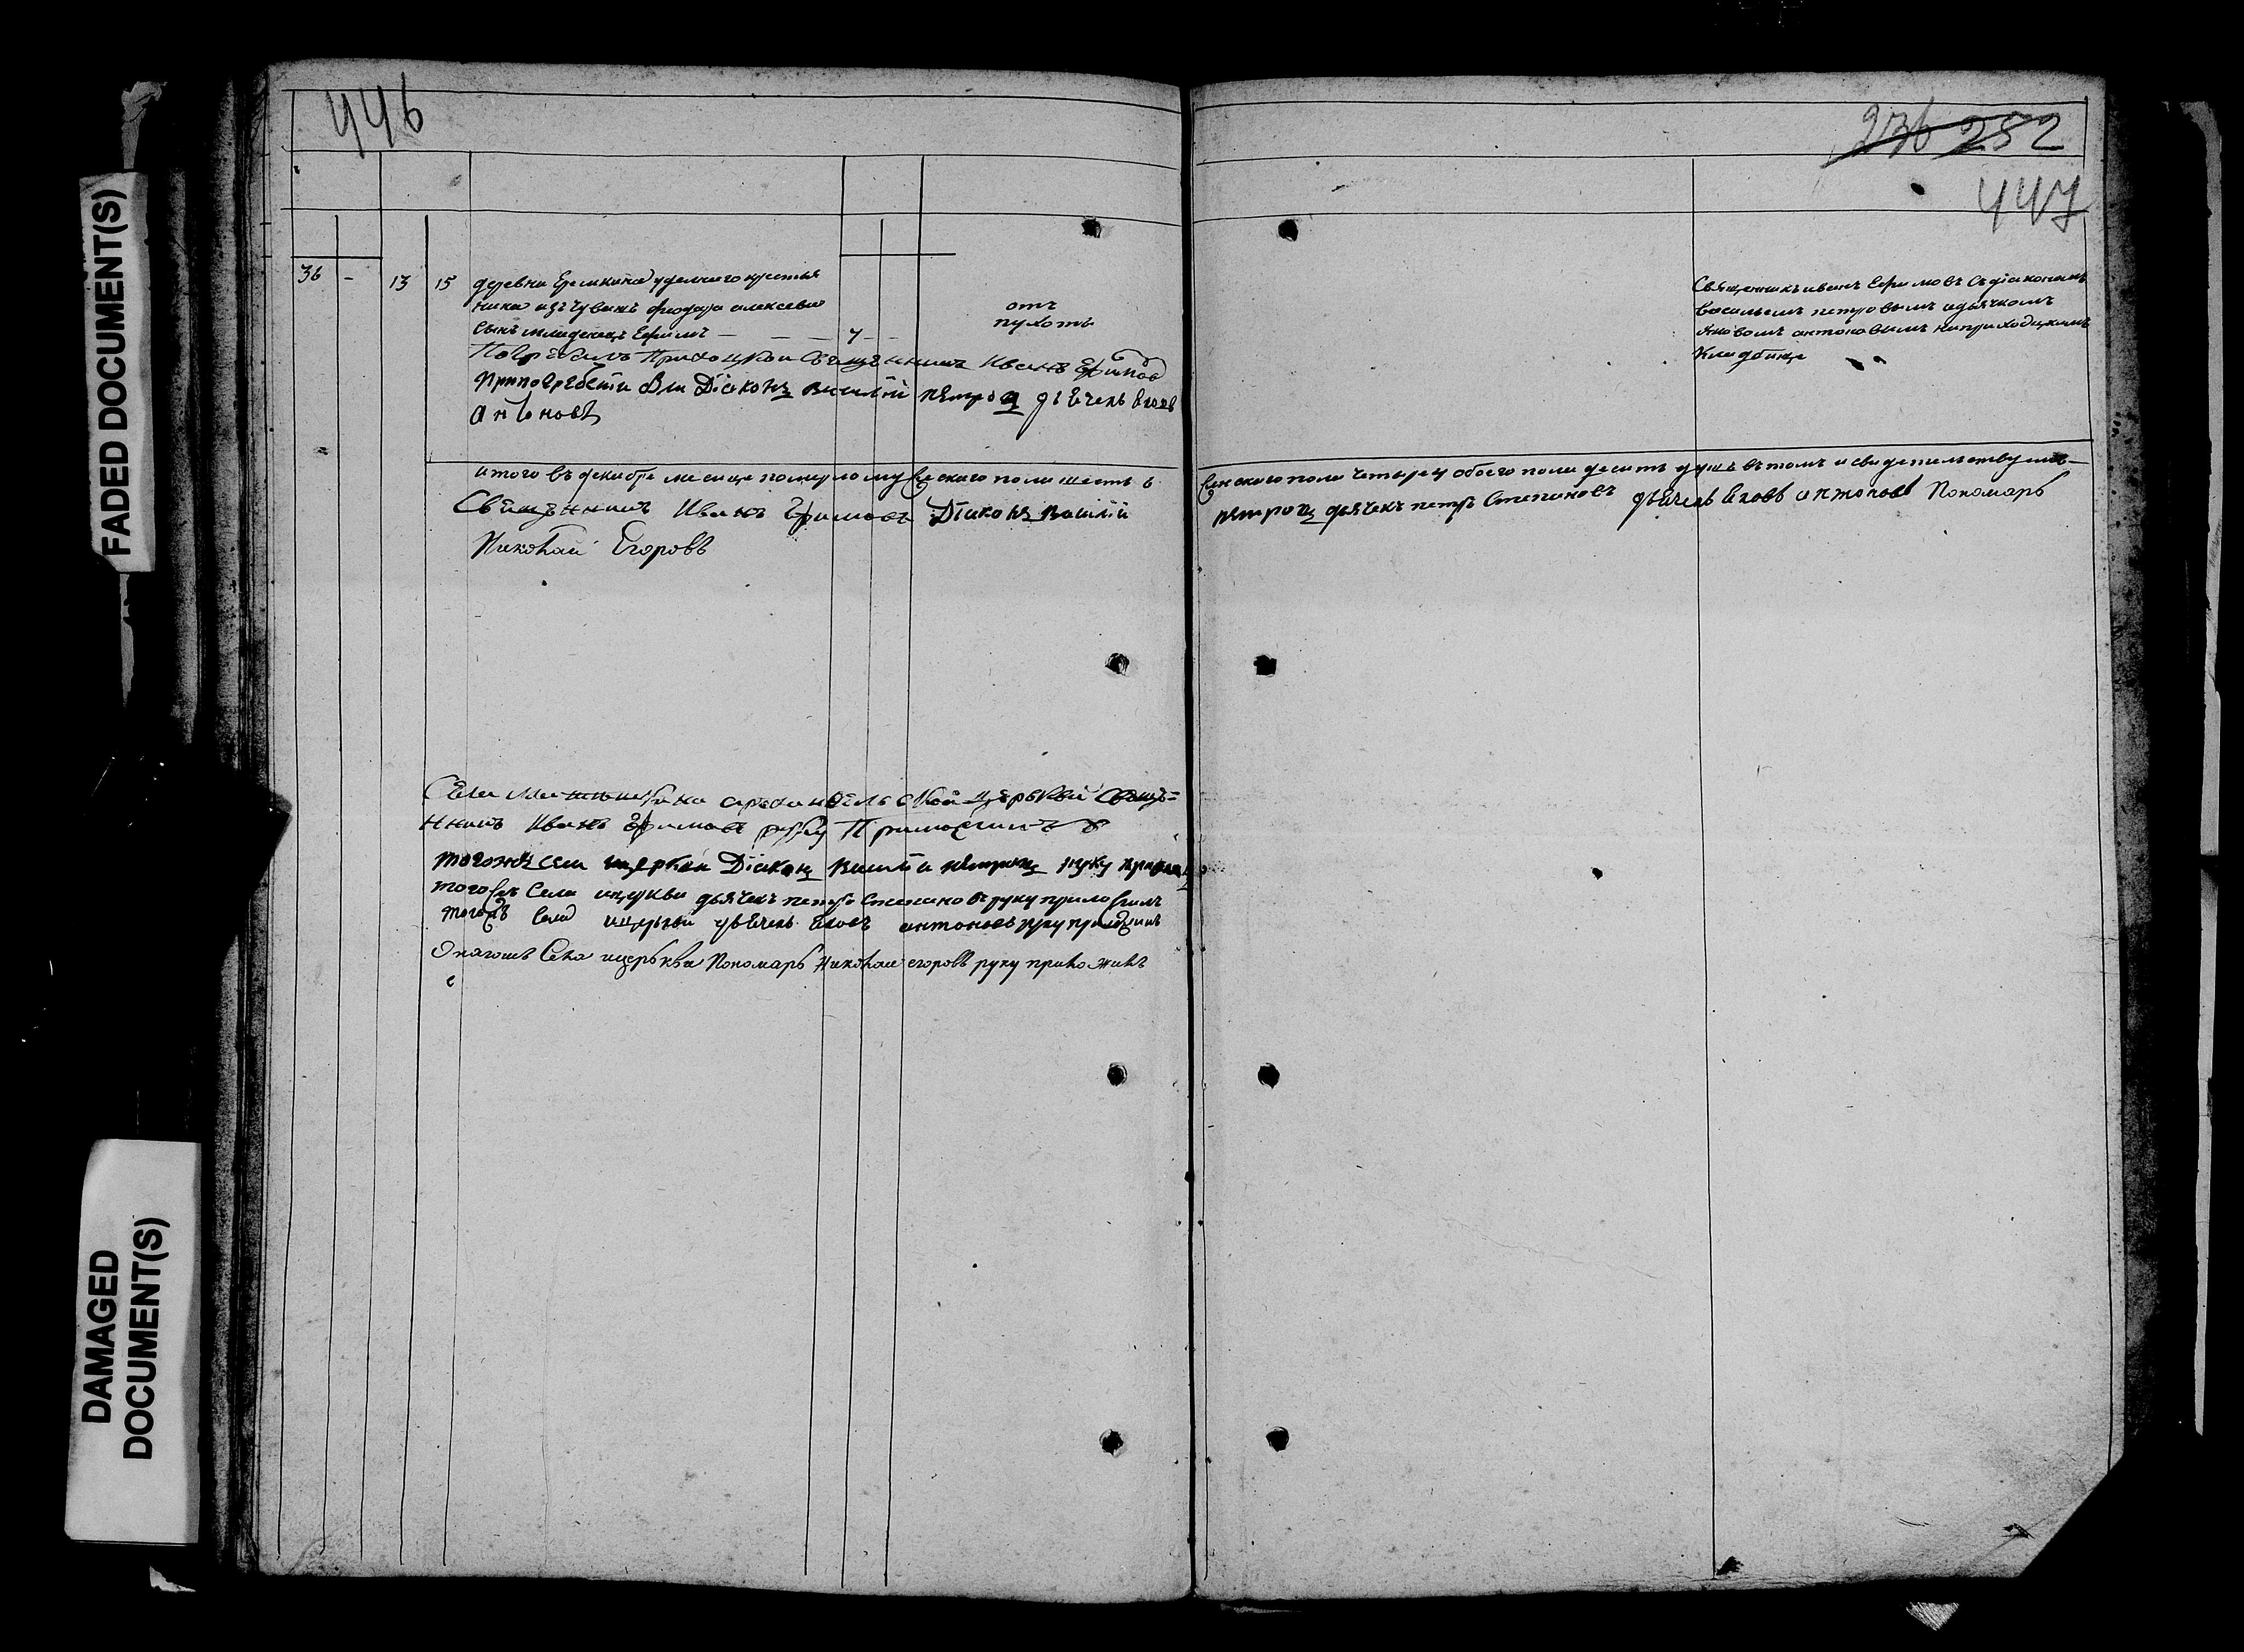 FADED DOCUMENT(S)
DAMAGED
DOCUMENT(S)
446
236 252
447
36 - 13 15 деревни Еремкина удельнаго крестья
нина изъ чувашъ феодора алексеева
сынъ младенецъ Ефимъ — — — 7 —
отъ
Погребалъ Приходской Священникъ Иванъ Ефимов
Припогребении Был Дiаконъ василiй петровъ дьячекъ Яковъ
Антоновъ
Священникъ иванъ Ефимовъ съ дiакономъ
васильемъ петровымъ идьячкомъ
Яковомъ антоновымъ наприходскомъ
Кладбище
итого въ декабре месяце померло мужескаго пола шесть
женскаго пола четыре обоего пола десять душъ вътомъ исвидетельствуемъ—
Священникъ Иванъ Ефимовъ Дiаконъ Василiй
петровъ дьячекъ петръ Степановъ дьячекъ Яковъ антоновъ Пономарь
Николай Егоровъ
Села архангельской церькви Свяще=
нникъ Иванъ Ефимовъ руку Приложилъ
тогожъ села церкви Дiаконъ василiй петровъ руку
тогожъ Села ицеркви дьячекъ петръ Степановъ руку приложилъ
тогожъ села ицерькви дьячекъ Яковъ антоновъ руку приложилъ
Села ицерькви Пономарь Николай егоровъ руку приложилъ